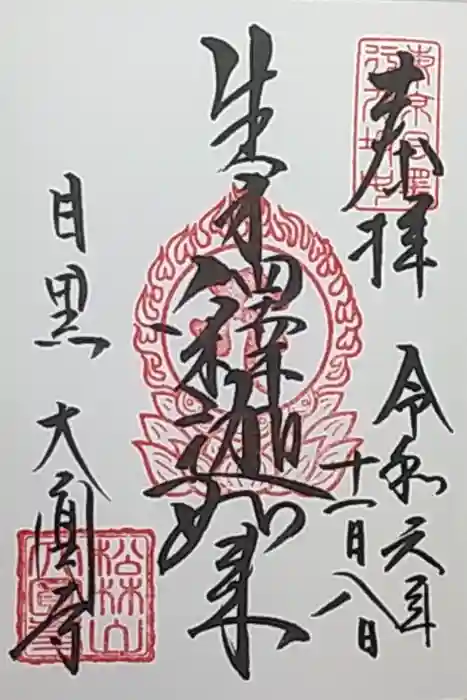 奉拝
令和元年
十一月八日
生身釈迦如来
目黒 大圓寺
松林山
大圓寺